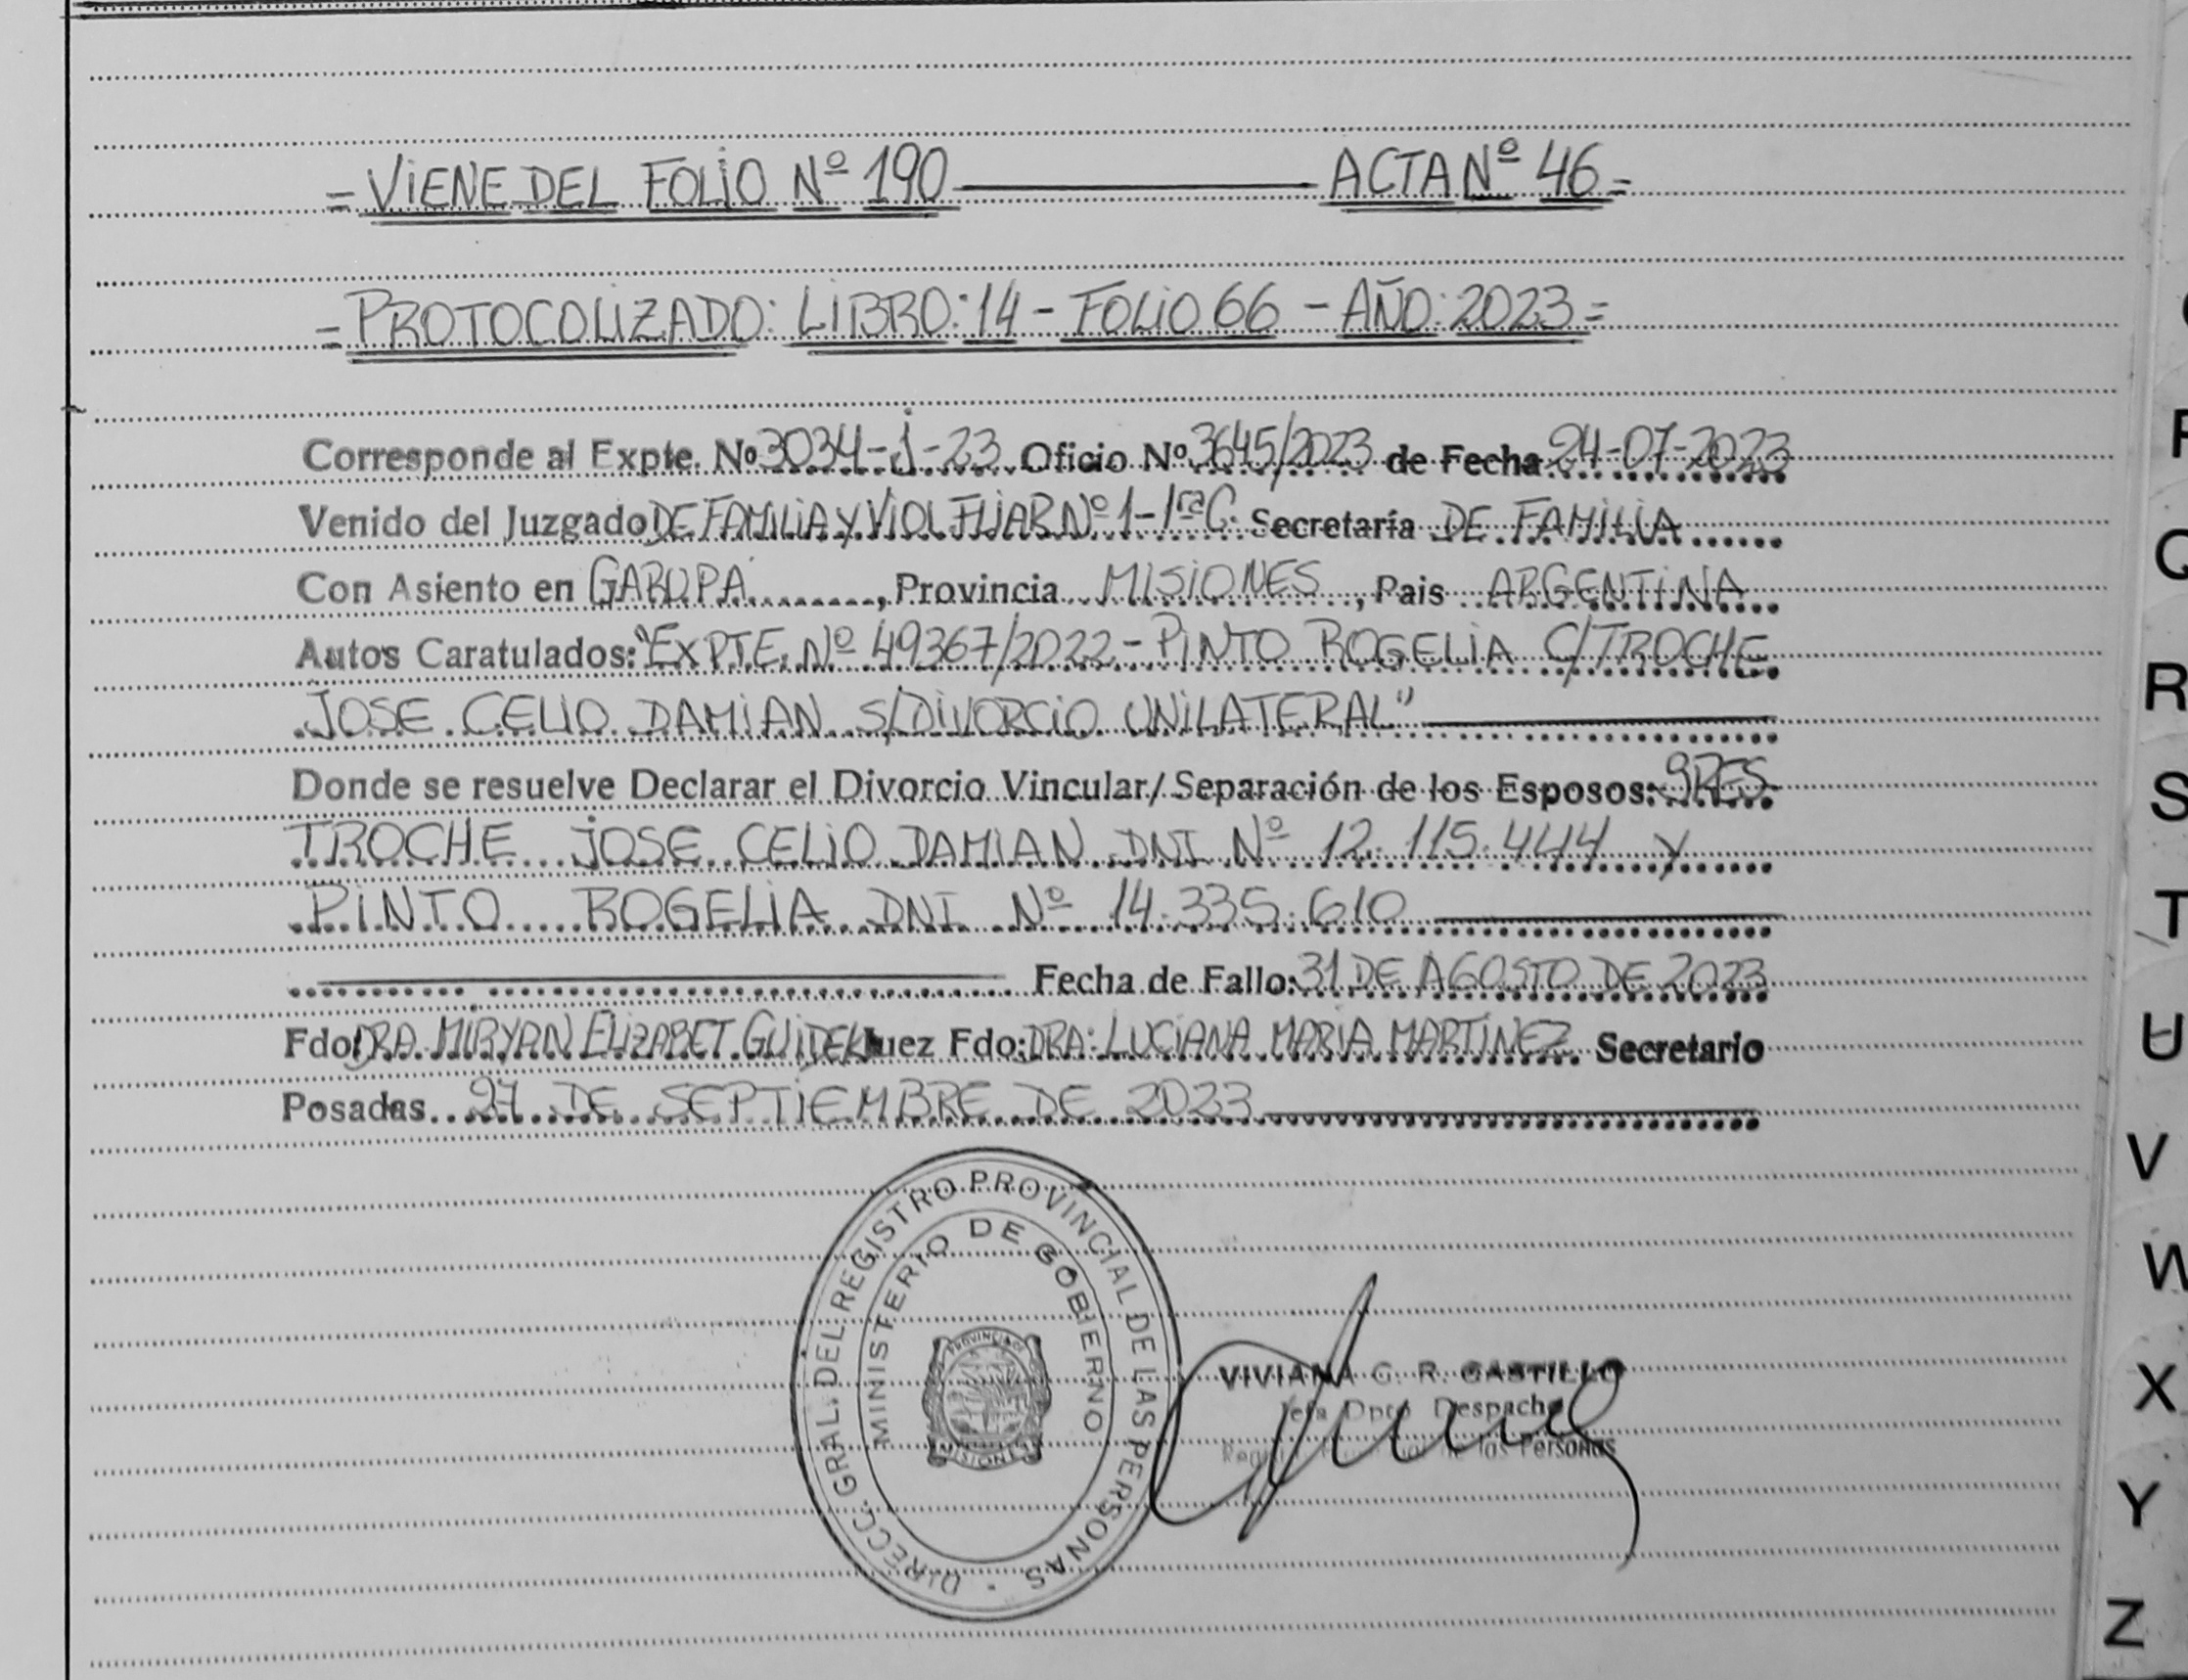 = VIENE DEL FOLIO Nº 190 ——— ACTA Nº 46 =
= PROTOCOLIZADO: LIBRO: 14 - FOLIO 66 - AÑO: 2023 =
Corresponde al Expte. Nº 3034-J-23 Oficio Nº 3645/2023 de Fecha 24-07-2023
Venido del Juzgado DE FAMILIA Y VIOL FLIAR Nº 1-1ra C. Secretaría DE FAMILIA
Con Asiento en GARUPA, Provincia MISIONES, Pais ARGENTINA
Autos Caratulados: "EXPTE. Nº 49367/2022 - PINTO ROGELIA C/TROCHE
JOSE CELIO DAMIAN S/DIVORCIO UNILATERAL"
Donde se resuelve Declarar el Divorcio Vincular/Separación de los Esposos: SRES
TROCHE JOSE CELIO DAMIAN DNI Nº 12.115.444 Y
PINTO ROGELIA DNI Nº 14.335.610
Fecha de Fallo: 31 DE AGOSTO DE 2023
Fdo: DRA. MIRYAN ELIZABET GUIDEK Juez Fdo: DRA: LUCIANA MARIA MARTINEZ Secretario
Posadas 27 DE SEPTIEMBRE DE 2023
DIRECC. GRAL. DEL REGISTRO PROVINCIAL DE LAS PERSONAS
MINISTERIO DE GOBIERNO
MISIONES
VIVIANA G. R. CASTILLO
Jefa Dpto Despacho
de las Personas
R
S
T
U
V
W
X
Y
Z